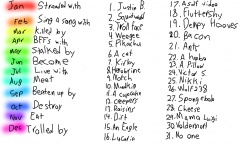 Jan Strawled with
Feb Sing a song with
Mar Killed by
Apr BFFS with
May Stalked by
Jun Become
Jul Live with
Aug Meet
Sep Beaten up by
Oct Destroy
Nov Eat
Dec Trolled by
1. Justin B.
2. Squidward
3. Troll face
4. Weegee
5. Pikachu
6. A cat
7. Kirby
8. Herobrine
9. Notch
10. Mudkip
11. A cupcake
12. creepers
13. Raisins
14. Dirt
15. An Eagle
16. Lucario
17. A sdf video
18. Fluttershy
19. Derpy Hooves
20. Bacon
21. Ants
22. A hobo
23. A Pillow
24. Victor S.
25. Nikki
26. Wolf238
27. Spongebob
28. Cheese
29. Mama Luigi
30. Voldemort
31. No one